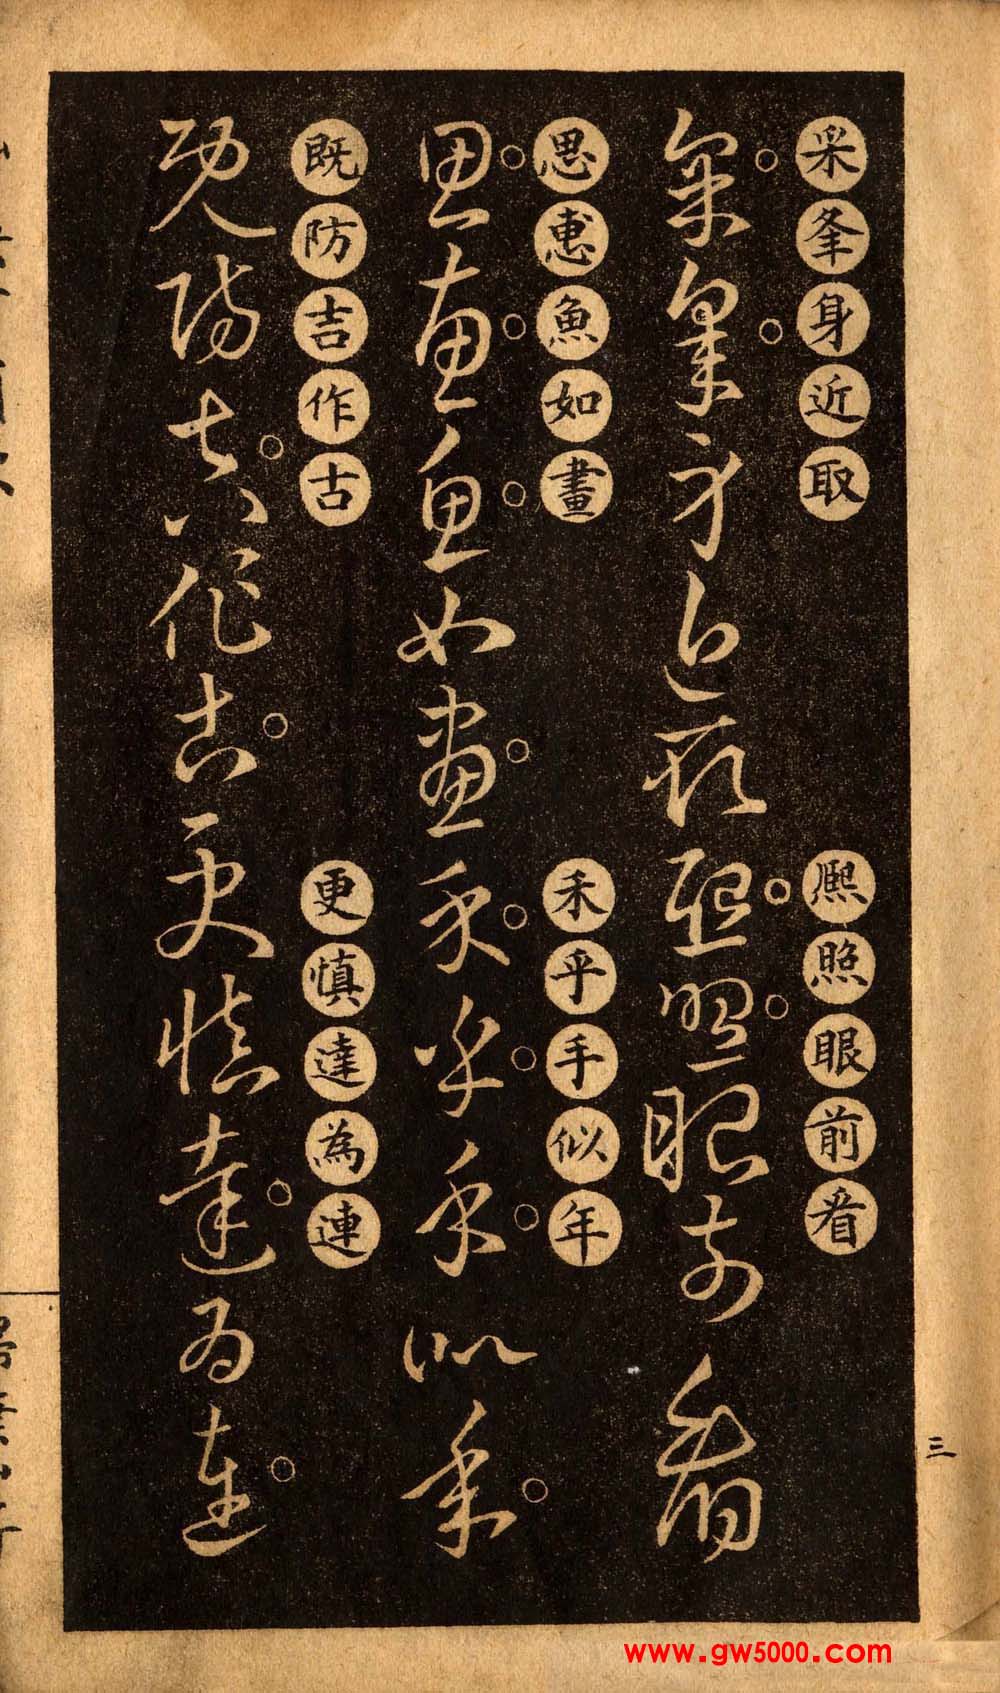 采夆身近取
熙照眼前看
思惠魚如畫
禾乎手似年
既防吉作古
更慎達為連
三
www.gw5000.com